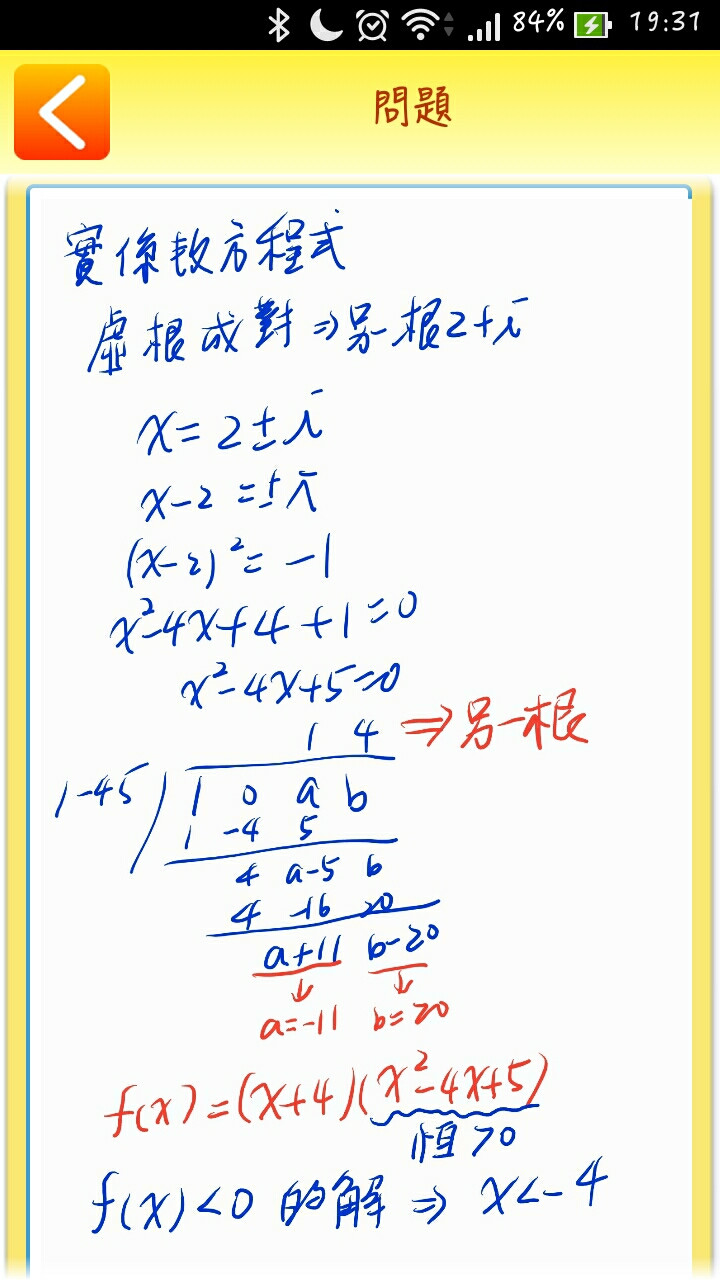 84% 19:31
問題
實係數方程式
虛根成對⇒另一根2+i
x=2±i
x-2=±i
(x-2)²=-1
x²-4x+4+1=0
x²-4x+5=0
1 4 ⇒另一根
1-45 1 0 a b
1 -4 5
4 a-5 b
4 -16 20
a+11 b-20
↓ ↓
a=-11 b=20
f(x)=(x+4)(x²-4x+5)
恒>0
f(x)<0 的解 ⇒ x<-4